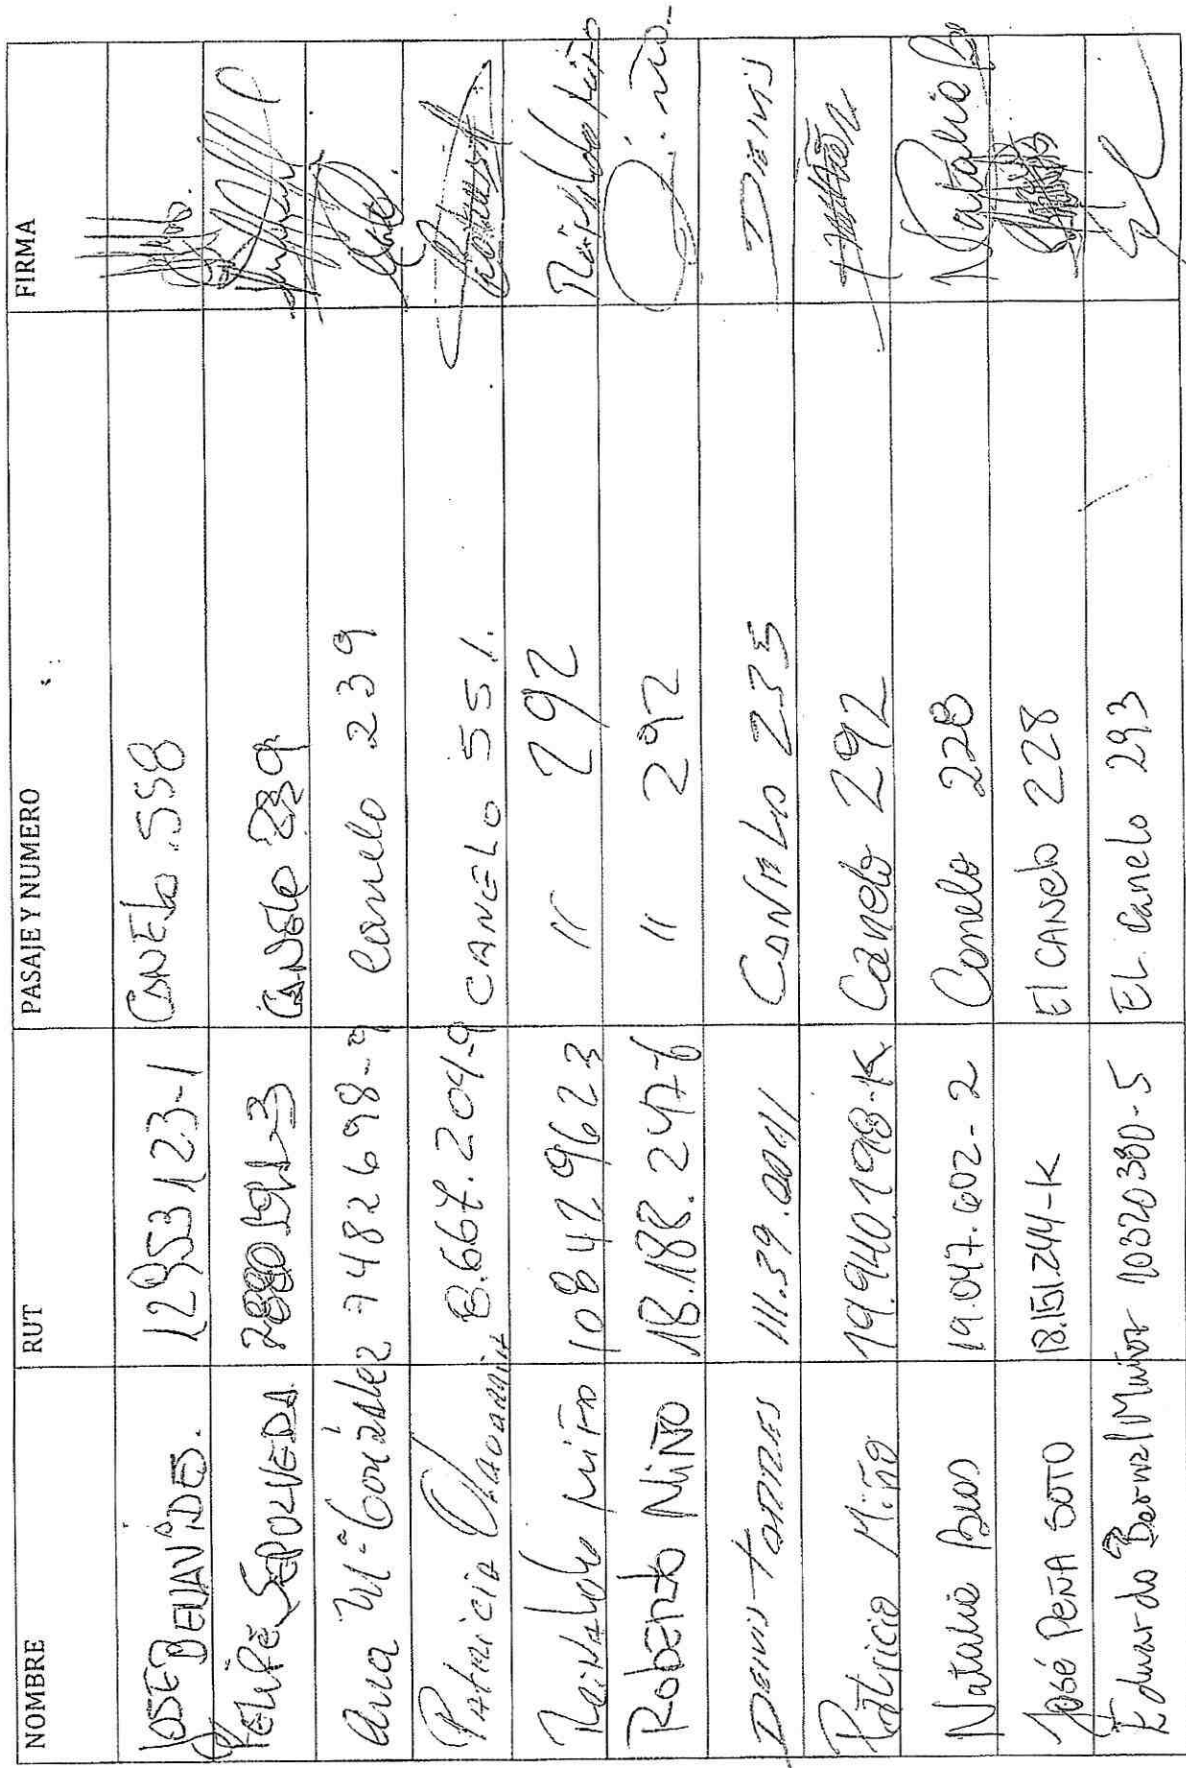 NOMBRE RUT PASAJE Y NUMERO FIRMA
JOSE BENAVIDES. 12953123-1 CANELO 558
FELIPE SEPULVEDA CANELO
Ana Mª González 7482698-9 Canelo 239
Patricia 8.667.204-9 CANELO 551.
Reinaldo Miño 108429623 " 292 Reinaldo Miño
Roberto Miño 18.188.247-6 " 292
Denis Torres 111.39.0011 Canelo 235 Denis
Patricio Miño 19.940.198-K Canelo 292
Natalia Rios 19.047.602-2 Canelo 228 Natalia R
José Peña Soto 18.151.244-K El Canelo 228
Eduardo Bernal Muñoz 10320380-5 EL Canelo 293